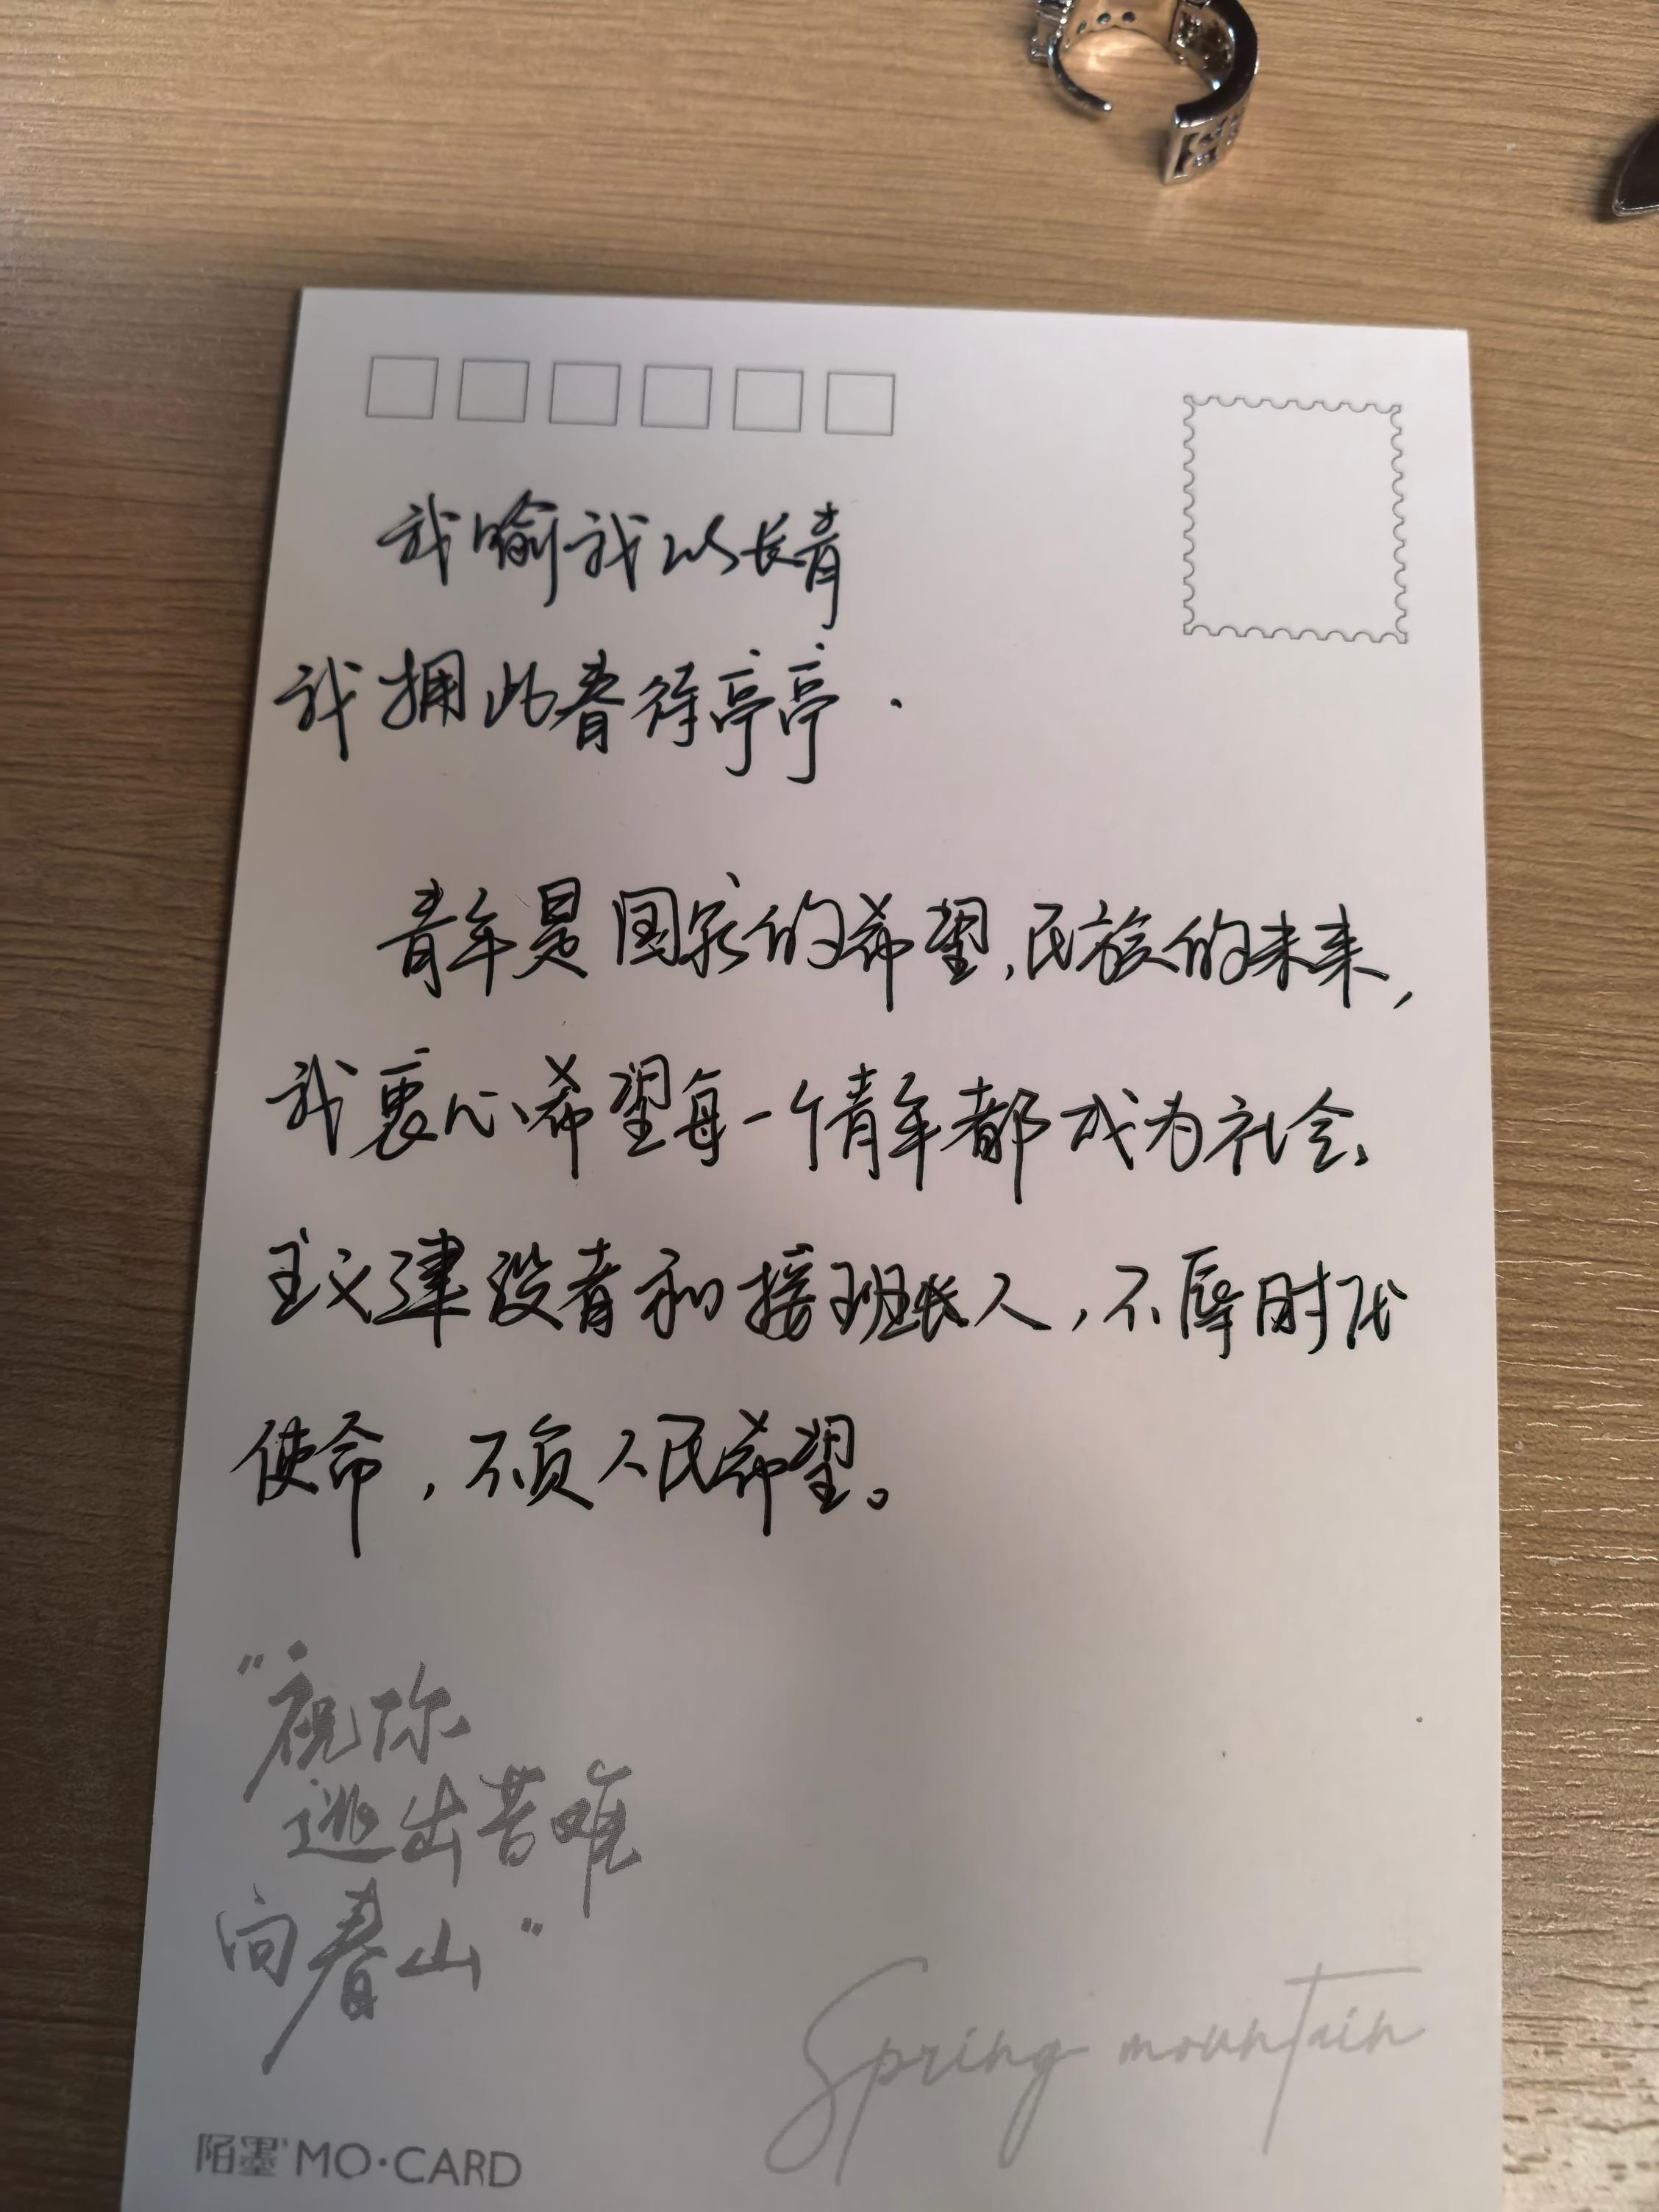 我喻我以长青
我拥此春待亭亭.
青年是国家的希望,民族的未来,
我衷心希望每一个青年都成为社会
主义建设者和接班长人,不辱时代
使命,不负人民希望。
"祝你
逃出苦难
向春山"
Spring mountain
陌墨 MO·CARD